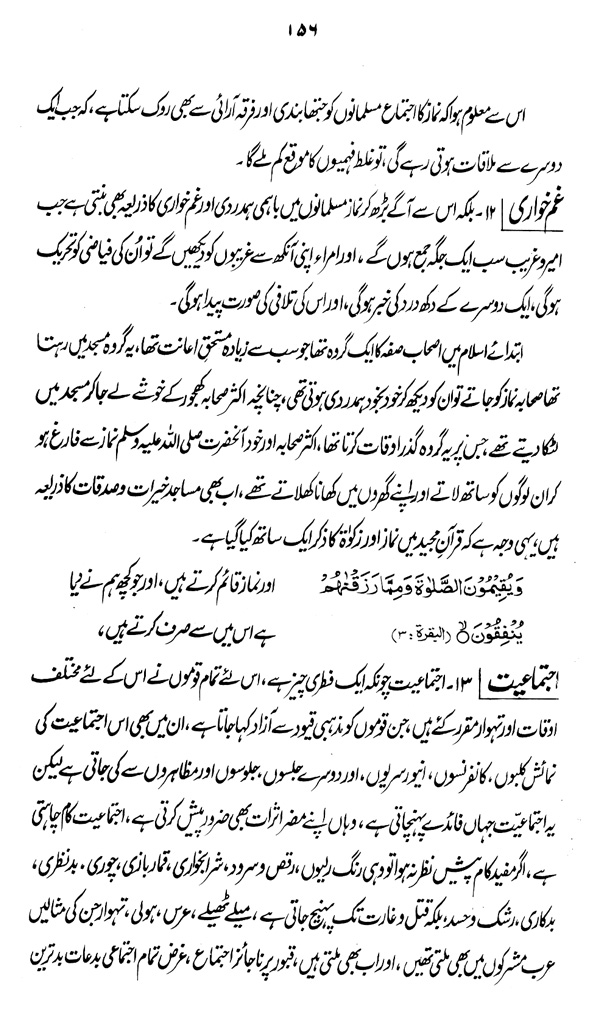 ۱۵۶
اس سے معلوم ہوا کہ نماز کا اجتماع مسلمانوں کو جتھا بندی اور فرقہ آرائی سے بھی روک سکتا ہے، کہ جب ایک
دوسرے سے ملاقات ہوتی رہے گی، تو غلط فہمیوں کا موقع کم ملے گا۔
غم خواری | ۱۲۔ بلکہ اس سے آگے بڑھ کر نماز مسلمانوں میں باہمی ہمدردی اور غم خواری کا ذریعہ بھی بنتی ہے جب
امیر و غریب سب ایک جگہ جمع ہوں گے، اور امراء اپنی آنکھ سے غریبوں کو دیکھیں گے تو اُن کی فیاضی کو تحریک
ہوگی، ایک دوسرے کے دکھ درد کی خبر ہوگی، اور اس کی تلافی کی صورت پیدا ہوگی۔
ابتدائے اسلام میں اصحاب صفہ کا ایک گروہ تھا جو سب سے زیادہ مستحقِ اعانت تھا، یہ گروہ مسجد میں رہتا
تھا صحابہ نماز کو جاتے تو ان کو دیکھ کر خود بخود ہمدردی ہوتی تھی، چنانچہ اکثر صحابہ کھجور کے خوشے لے جا کر مسجد میں
لٹکا دیتے تھے، جس پر یہ گروہ گذر اوقات کرتا تھا، اکثر صحابہ اور خود آنحضرت صلی اللہ علیہ وسلم نماز سے فارغ ہو
کر ان لوگوں کو ساتھ لاتے اور اپنے گھروں میں کھانا کھلاتے تھے، اب بھی مساجد خیرات و صدقات کا ذریعہ
ہیں، یہی وجہ ہے کہ قرآن مجید میں نماز اور زکوٰۃ کا ذکر ایک ساتھ کیا گیا ہے۔
وَيُقِيْمُوْنَ الصَّلٰوةَ وَمِمَّا رَزَقْنٰهُمْ اور نماز قائم کرتے ہیں، اور جو کچھ ہم نے دیا
يُنْفِقُوْنَ ۙ (البقرۃ : ۳) ہے اس میں سے صرف کرتے ہیں،
اجتماعیت | ۱۳۔ اجتماعیت چونکہ ایک فطری چیز ہے، اس لئے تمام قوموں نے اس کے لئے مختلف
اوقات اور تہوار مقرر کئے ہیں، جن قوموں کو مذہبی قیود سے آزاد کہا جاتا ہے، ان میں بھی اس اجتماعیت کی
نمائش کلبوں، کانفرنسوں، انیورسریوں، اور دوسرے جلسوں، جلوسوں اور مظاہروں سے کی جاتی ہے لیکن
یہ اجتماعیّت جہاں فائدے پہنچاتی ہے، وہاں اپنے مضر اثرات بھی ضرور پیش کرتی ہے، اجتماعیت کام چاہتی
ہے، اگر مفید کام پیش نظر نہ ہوا تو وہی رنگ رلیوں، رقص و سرود، شرابخواری، قمار بازی، چوری، بدنظری،
بدکاری، رشک و حسد، بلکہ قتل و غارت تک پہنچ جاتی ہے، میلے ٹھیلے، عرس، ہولی، تہوار جن کی مثالیں
عرب مشرکوں میں بھی ملتی تھیں، اور اب بھی ملتی ہیں، قبور پر ناجائز اجتماع، غرض تمام اجتماعی بدعات بدترین